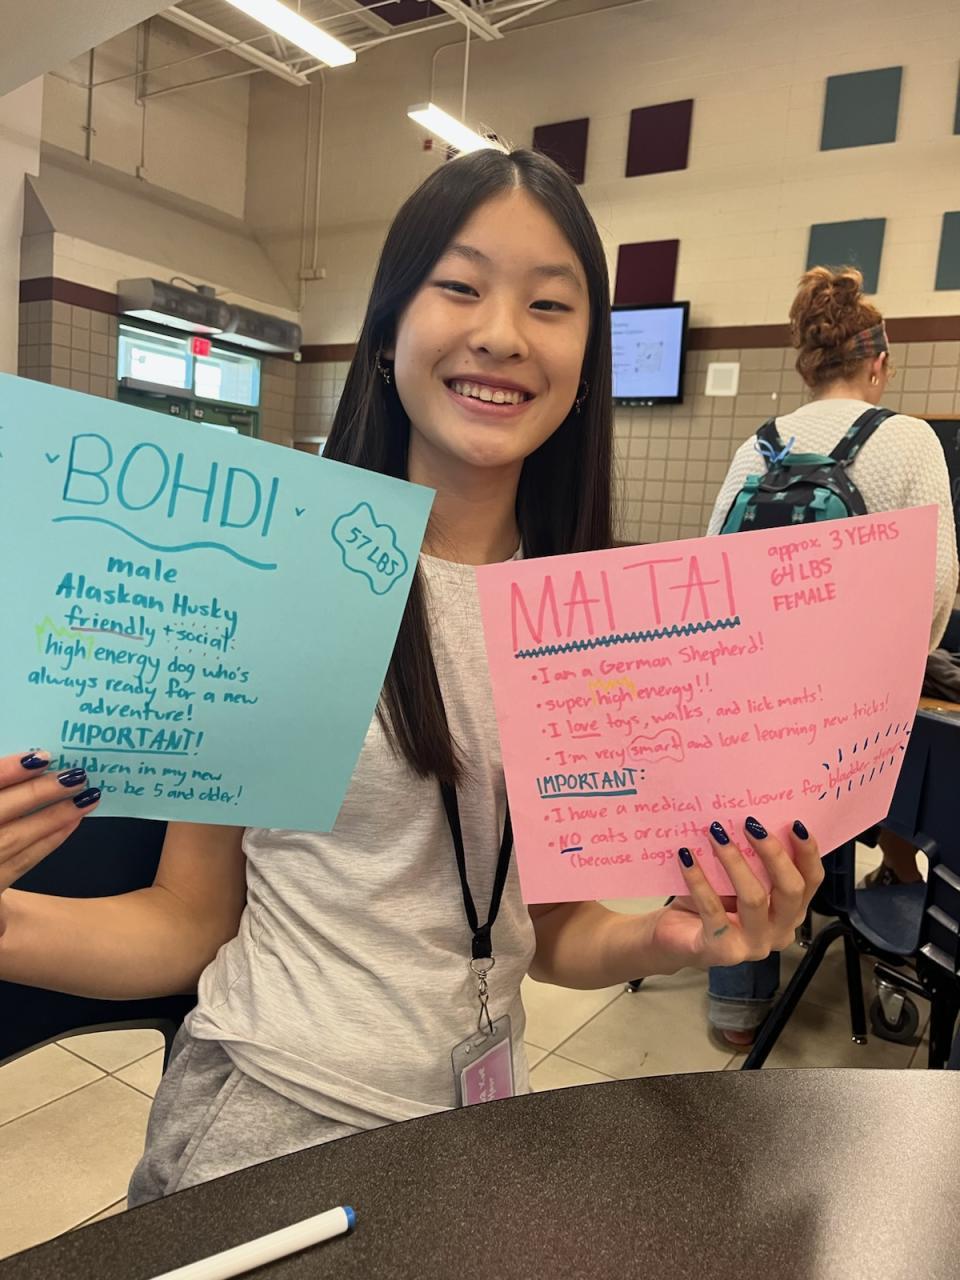 BOHDI
57 LBS
male
Alaskan Husky
friendly + social
high energy dog who's
always ready for a new
adventure!
IMPORTANT!
children in my new
to be 5 and older!
MAI TAI
approx. 3 YEARS
64 LBS
FEMALE
• I am a German Shepherd!
• super high energy!!
• I love toys, walks, and lick mats!
• I'm very smart and love learning new tricks!
IMPORTANT:
• I have a medical disclosure for bladder
• NO cats or critters!
(because dogs